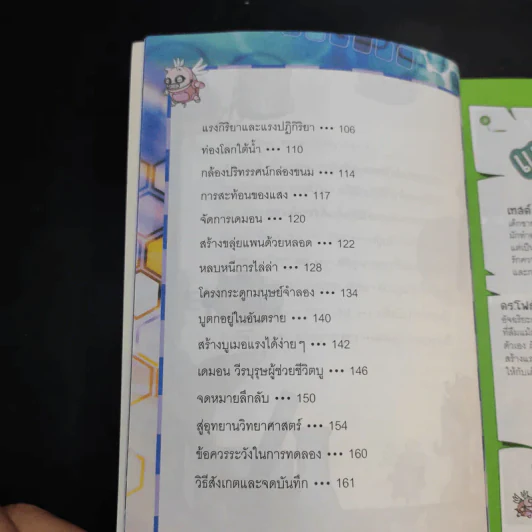 แรงกิริยาและแรงปฏิกิริยา ••• 106
ท่องโลกใต้น้ำ ••• 110
กล้องปริทรรศน์กล่องขนม ••• 114
การสะท้อนของแสง ••• 117
จัดการเดมอน ••• 120
สร้างขลุ่ยแพนด้วยหลอด ••• 122
หลบหนีการไล่ล่า ••• 128
โครงกระดูกมนุษย์จำลอง ••• 134
บูตกอยู่ในอันตราย ••• 140
สร้างบูเมอแรงได้ง่าย ๆ ••• 142
เดมอน วีรบุรุษผู้ช่วยชีวิตบู ••• 146
จดหมายลึกลับ ••• 150
สู่อุทยานวิทยาศาสตร์ ••• 154
ข้อควรระวังในการทดลอง ••• 160
วิธีสังเกตและจดบันทึก ••• 161